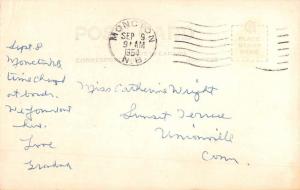 POST CARD
MONCTON
SEP 9
9 AM
1954
N.B.
PLACE
STAMP
HERE
CORRESPONDENCE
Sept 8
Moncton NB
time changed
at border.
We
Love
Grandma
Miss Catherine Wright
Sunset Terrace
Unionville
Conn.